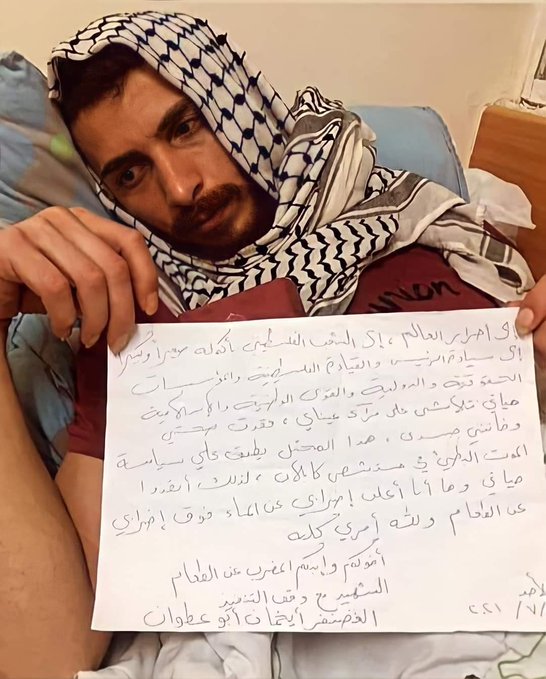 إلى احرار العالم ، إلى الشعب الفلسطيني بأكمله صغيراً وكبيراً
إلى سيادة الرئيس والقيادة الفلسطينية والمؤسسات
الحقوقية والدولية والقوى الوطنية والإسلامية
حياتي تتلاشى على مرأى عيناي ، فقدت صحتي
وخانني جسدي ، هذا المحتل يطبق علي سياسة
الموت البطيء في مستشفى كابلان ، لذلك أنقذوا
حياتي وها أنا أعلن إضرابي عن الماء فوق إضرابي
عن الطعام ولله أمري كله
أخوكم وابنكم المضرب عن الطعام
الشهيد مع وقف التنفيذ
الغضنفر أيخمان أبو عطوان
الأحد
/٧/ ٢٠٢١
union